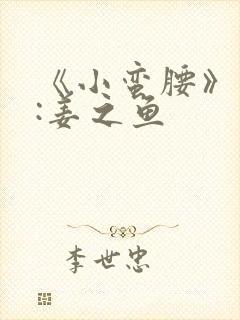 《小蛮腰》
:姜之鱼
李世忠